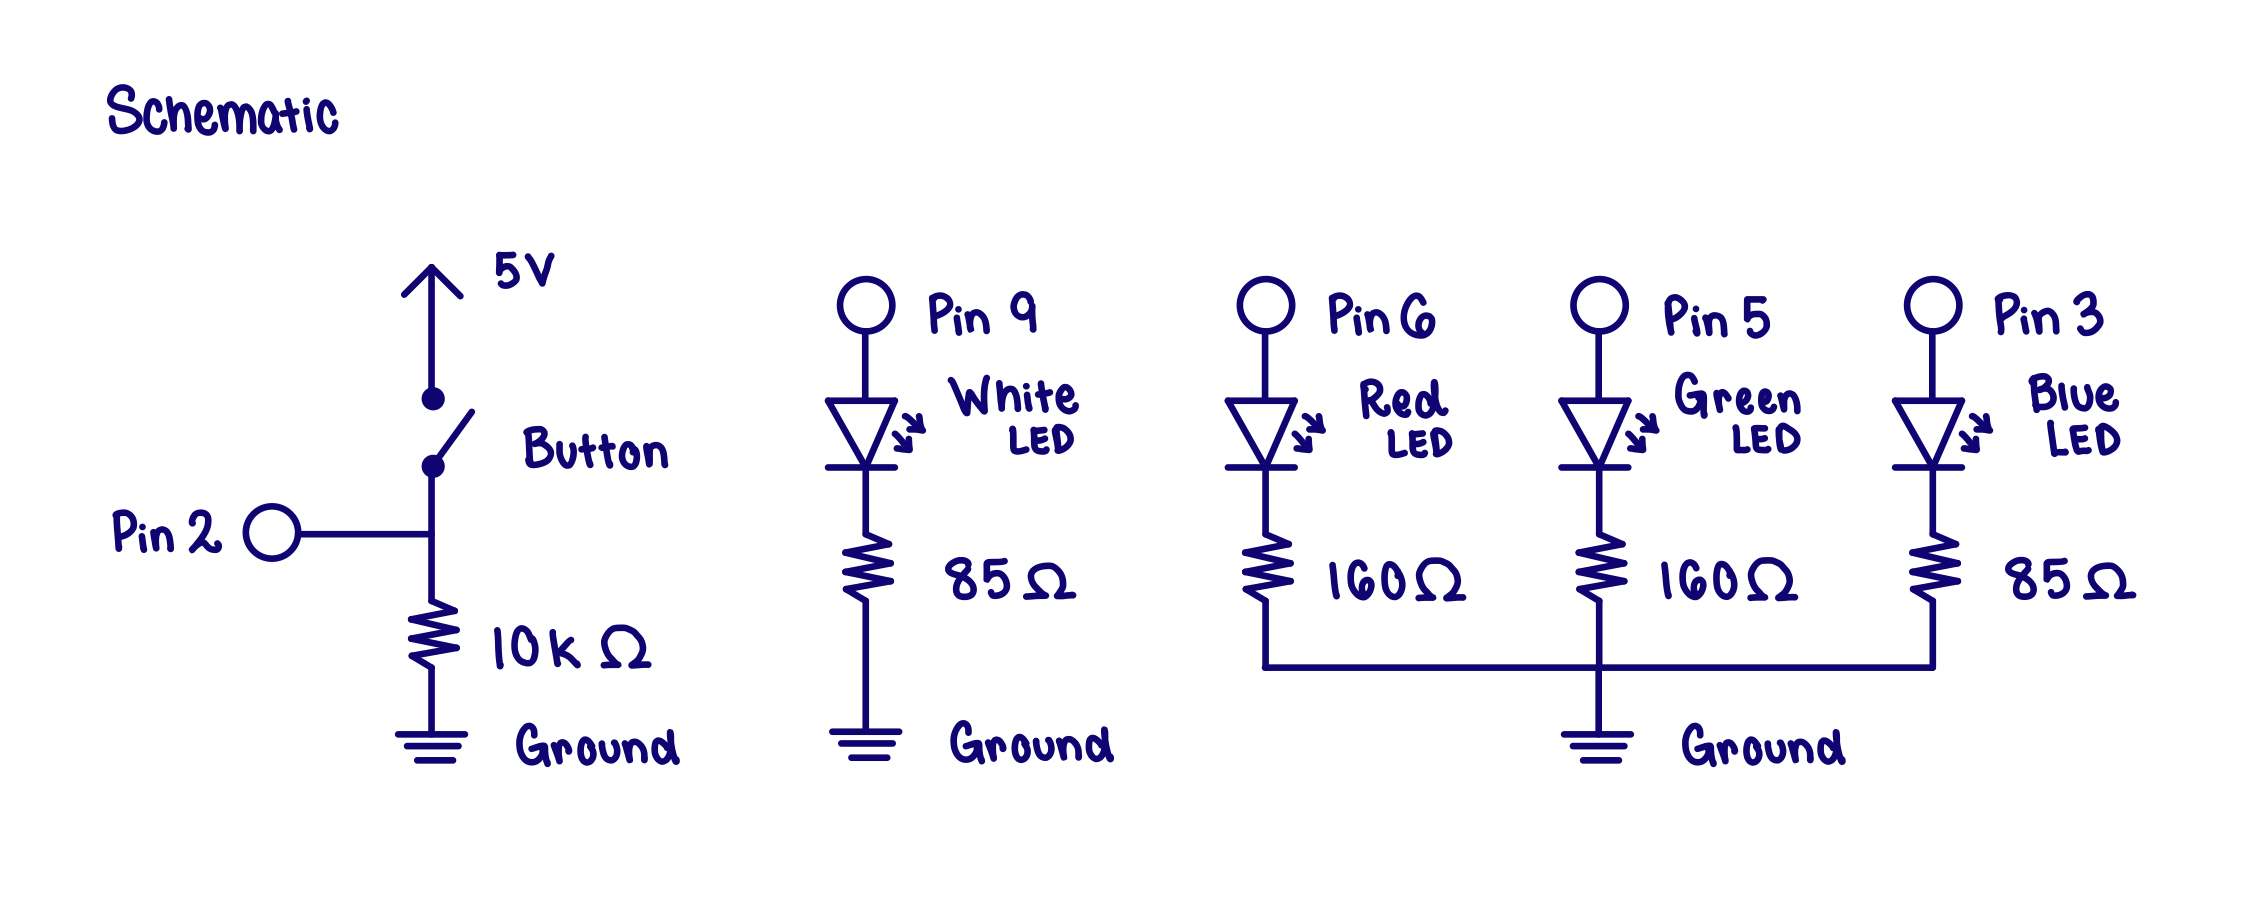 Schematic
5V
Button
Pin 2
10k Ω
Ground
Pin 9
White
LED
85Ω
Ground
Pin 6
Red
LED
160Ω
Pin 5
Green
LED
160Ω
Pin 3
Blue
LED
85Ω
Ground